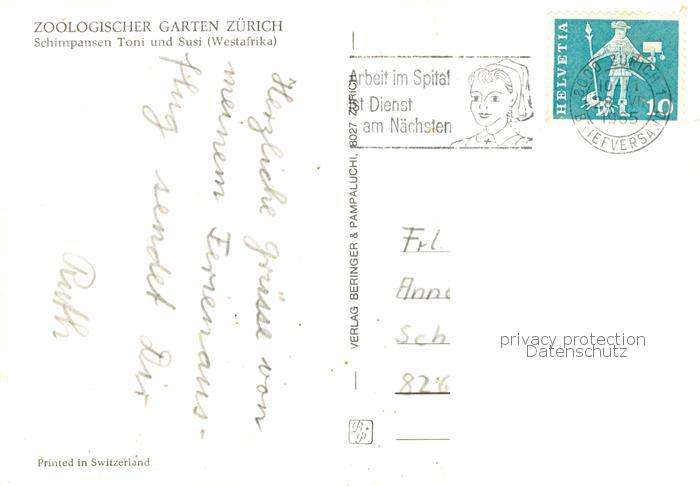 ZOOLOGISCHER GARTEN ZÜRICH
Schimpansen Toni und Susi (Westafrika)
Herzliche Grüsse von
meinem Ferienaus-
flug sendet Dir
Ruth
Printed in Switzerland
VERLAG BERINGER & PAMPALUCHI, 8027 ZÜRICH
Arbeit im Spital
ist Dienst
am Nächsten
HELVETIA
10
1965
BRIEFVERSAND
Frl.
Anne
Sch
826
privacy protection
Datenschutz